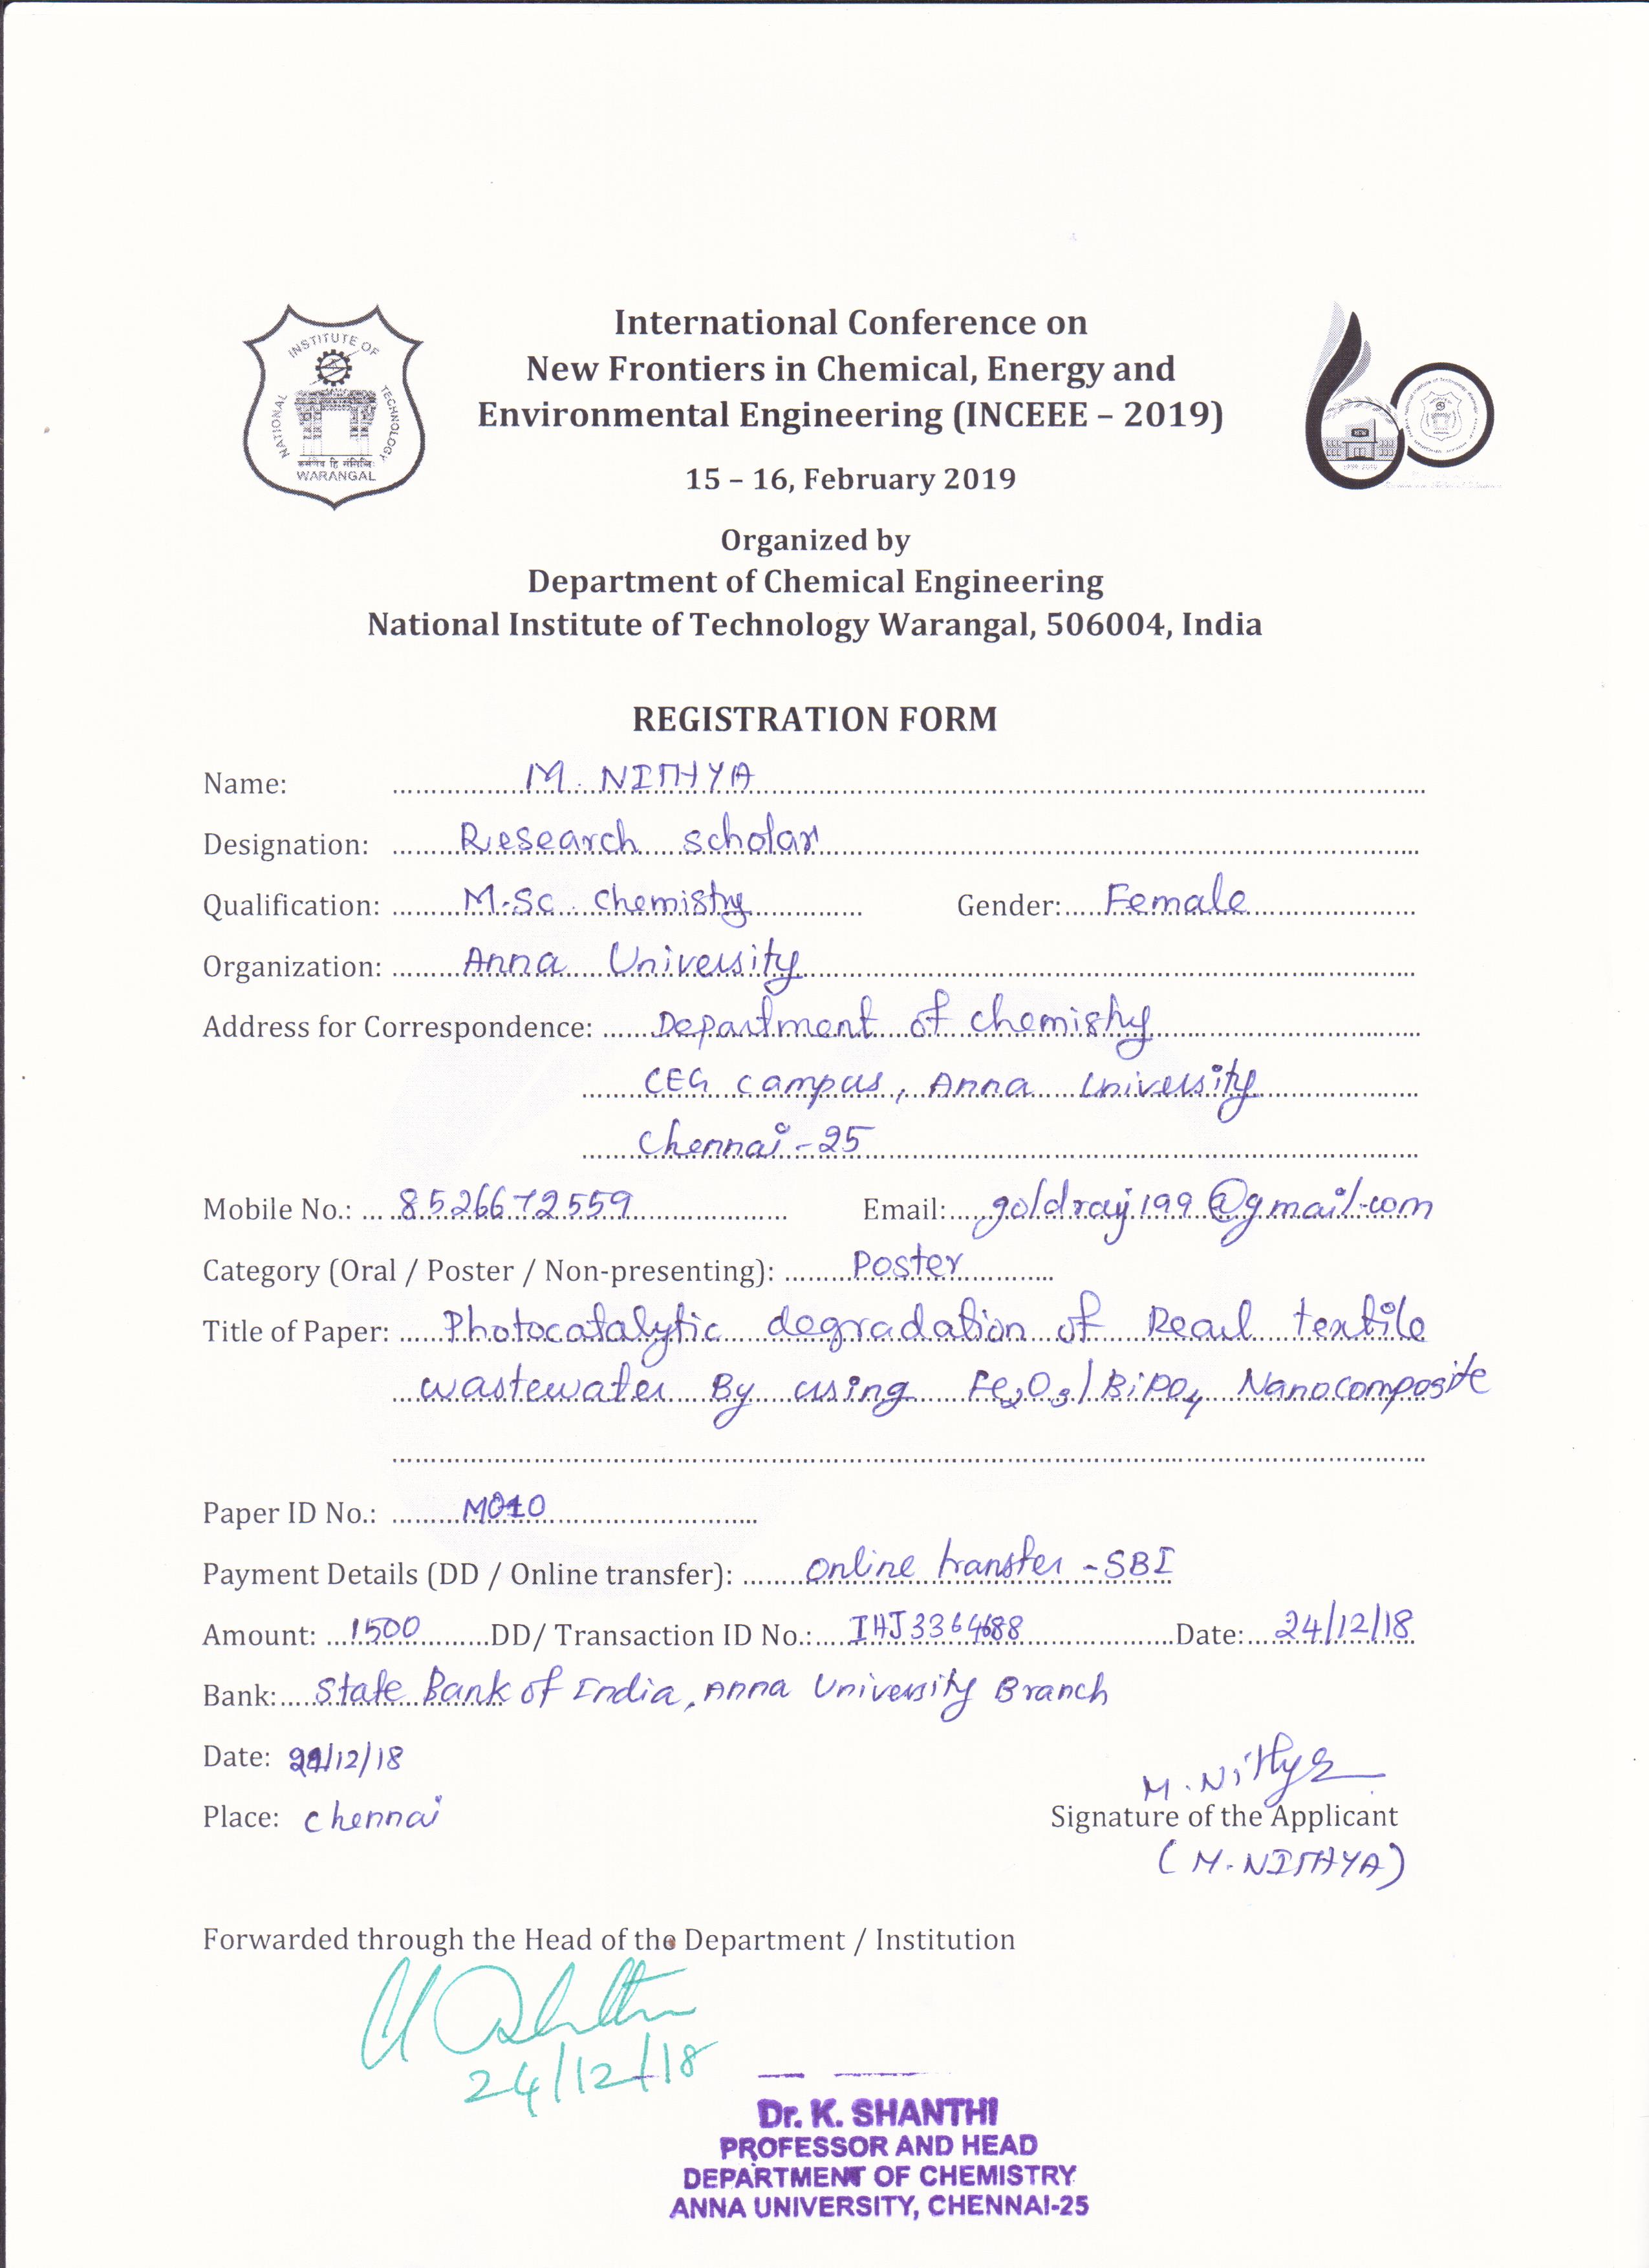 International Conference on
New Frontiers in Chemical, Energy and
Environmental Engineering (INCEEE – 2019)
15 – 16, February 2019
NATIONAL INSTITUTE OF TECHNOLOGY
WARANGAL
Organized by
Department of Chemical Engineering
National Institute of Technology Warangal, 506004, India
REGISTRATION FORM
Name: M. NITHYA
Designation: Research scholar
Qualification: M.Sc chemistry Gender: Female
Organization: Anna University
Address for Correspondence: Department of chemistry
CEG campus, Anna University
Chennai-25
Mobile No.: 8526672559 Email: goldraj199@gmail.com
Category (Oral / Poster / Non-presenting): Poster
Title of Paper: Photocatalytic degradation of Real textile
wastewater By using Fe2O3/BiPO4 Nanocomposite
Paper ID No.: M010
Payment Details (DD / Online transfer): online transfer - SBI
Amount: 1500 DD/ Transaction ID No.: IHJ3364688 Date: 24/12/18
Bank: State Bank of India, Anna University Branch
Date: 24/12/18
Place: chennai
M. Nithya
Signature of the Applicant
(M. NITHYA)
Forwarded through the Head of the Department / Institution
24/12/18
Dr. K. SHANTHI
PROFESSOR AND HEAD
DEPARTMENT OF CHEMISTRY
ANNA UNIVERSITY, CHENNAI-25